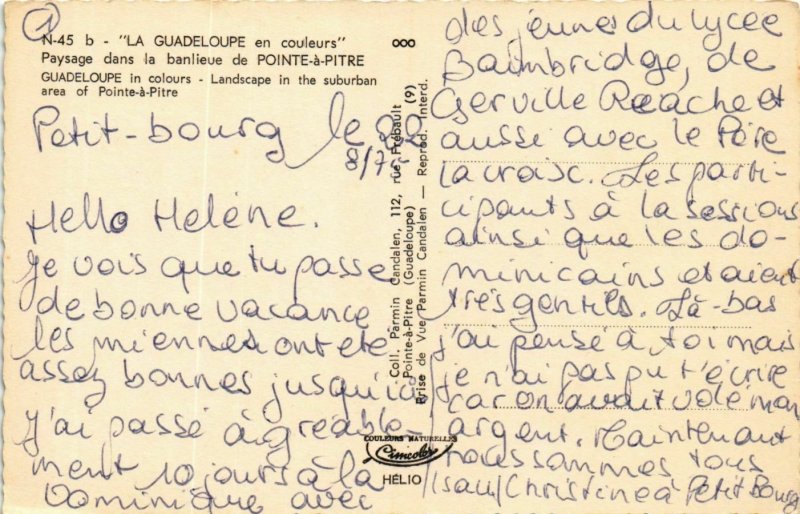 1
N-45 b - "LA GUADELOUPE en couleurs"
Paysage dans la banlieue de POINTE-à-PITRE
GUADELOUPE in colours - Landscape in the suburban
area of Pointe-à-Pitre
Petit-bourg le 22
8/7
Hello Helène.
Je vois que tu passe
de bonne vacance
les miennes ont été
assez bonnes jusqu'ici
j'ai passé agréable-
ment 10 jours à la
Dominique avec
ooo
Coll. Parmin Candalen, 112, rue Frébault (9)
Pointe-à-Pitre (Guadeloupe)
Prise de Vue Parmin Candalen — Reprod. Interd.
COULEURS NATURELLES
Cimcolor
HÉLIO
des jeunes du lycée
Baimbridge, de
Gerville Réache et
aussi avec le Père
lacroix. Les parti-
cipants à la sessions
ainsi que les do-
minicains etaient
très gentils. Là-bas
j'ai pensé à toi mais
je n'ai pas pu t'écrire
car on avait volé mon
argent. Maintenant
nous sommes tous
/sauf/Christine à Petit Bourg